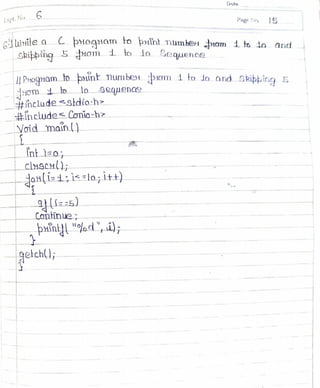 Date
Expt. No. 6
Page No. 15
6.) Write a C program to print number from 1 to 10 and
skipping 5 from 1 to 10 sequence
// Program to print number from 1 to 10 and skipping 5
from 1 to 10 sequence
#include <stdio.h>
#include < conio.h>
Void main()
{
int i=0;
clrscr();
for(i=1; i<=10; i++)
{
if(i==5)
Continue;
printf( "%d", i);
}
getch();
}